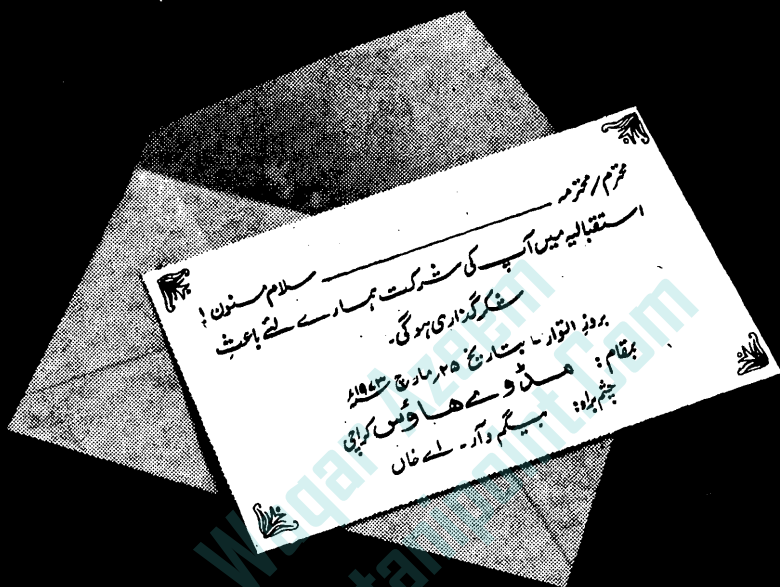 محترم/محترمہ ــــــــــــ سلام مسنون!
استقبالیہ میں آپ کی شرکت ہمارے لئے باعثِ
شکرگذاری ہوگی۔
بروز اتوار۔ بتاریخ ۲۵ر مارچ ۱۹۷۳ء
بمقام: مڈوے ھاؤس کراچی
چشم براہ: بیگم و آر۔ اے خاں
Waqar Azeem
Pakistanipoint.Com